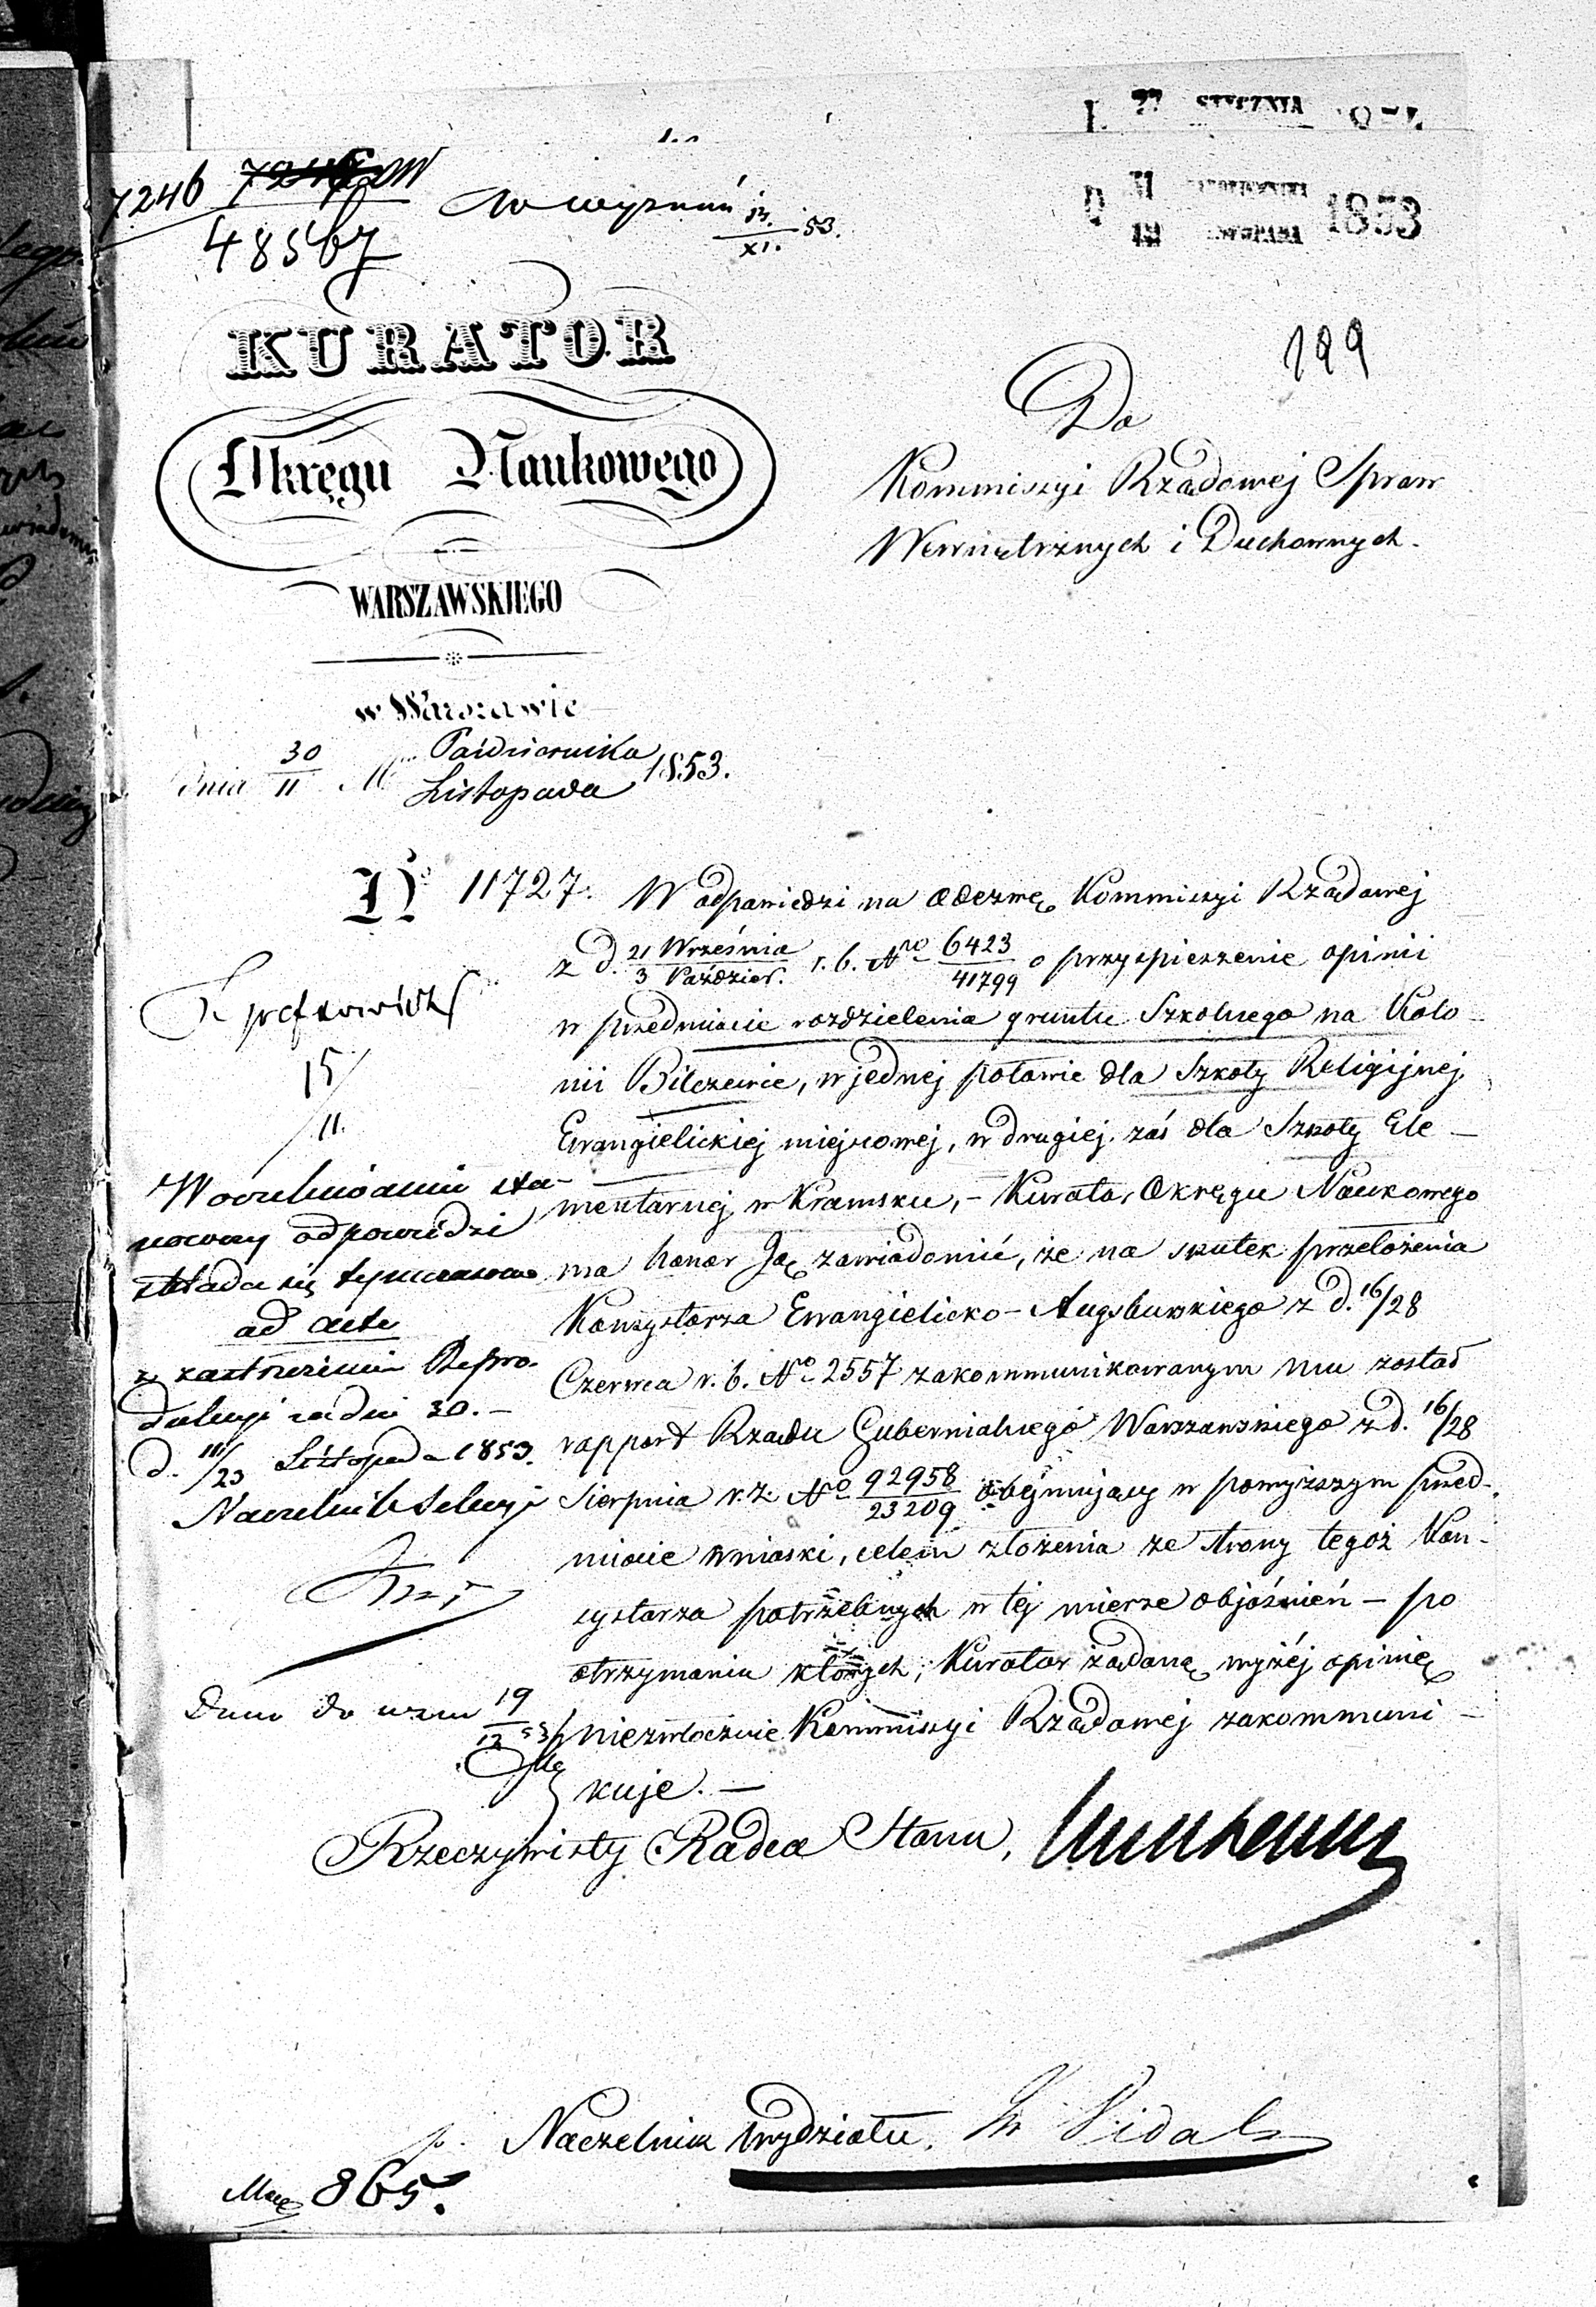 27 STYCZNIA
7246
48567
Do wyznań 13./XI. 53.
31 PAŹDZIERNIKA
12 LISTOPADA 1853
199
KURATOR
Okręgu Naukowego
WARSZAWSKIEGO
w Warszawie
dnia 30/11 Października/Listopada 1853.
Do
Kommissyi Rządowej Spraw
Wewnętrznych i Duchownych.
No 11727.
W odpowiedzi na odezwę Kommissyi Rządowej
z d. 21 Września/3 Paździer. r. b. No 6423/41799 o przyspieszenie opinii
w przedmiocie rozdzielenia gruntu Szkolnego na Kolo-
nii Bilczewie, w jednej połowie dla Szkoły Religijnej
Ewangielickiej miejscowej, w drugiej zaś dla Szkoły Ele-
mentarnej w Kramsku, – Kurator Okręgu Naukowego
ma honor Ją zawiadomić, że na skutek przełożenia
Konsystorza Ewangielicko-Augsburskiego z d. 16/28
Czerwca r. b. No 2557 zakommunikowanym mu został
rapport Rządu Gubernialnego Warszawskiego z d. 16/28
Sierpnia r. z. No 92958/23209 obejmujący w powyższym przed-
miocie wnioski, celem złożenia ze strony tegoż Kon-
systorza potrzebnych w tej mierze objaśnień – po
otrzymaniu których, Kurator żądaną wyżej opinię
niezwłocznie Kommissyi Rządowej zakommuni-
kuje. —
Rzeczywisty Radca Stanu,
15/11.
W oczekiwaniu sta-
nowczej odpowiedzi
składa się tymczasowo
ad acta
z zastrzeżeniem Repro-
dukcyi za dni 30. –
d. 11/23 Listopada 1853.
Naczelnik Sekcyi
19/12 53
p. Naczelnik Wydziału.
865.